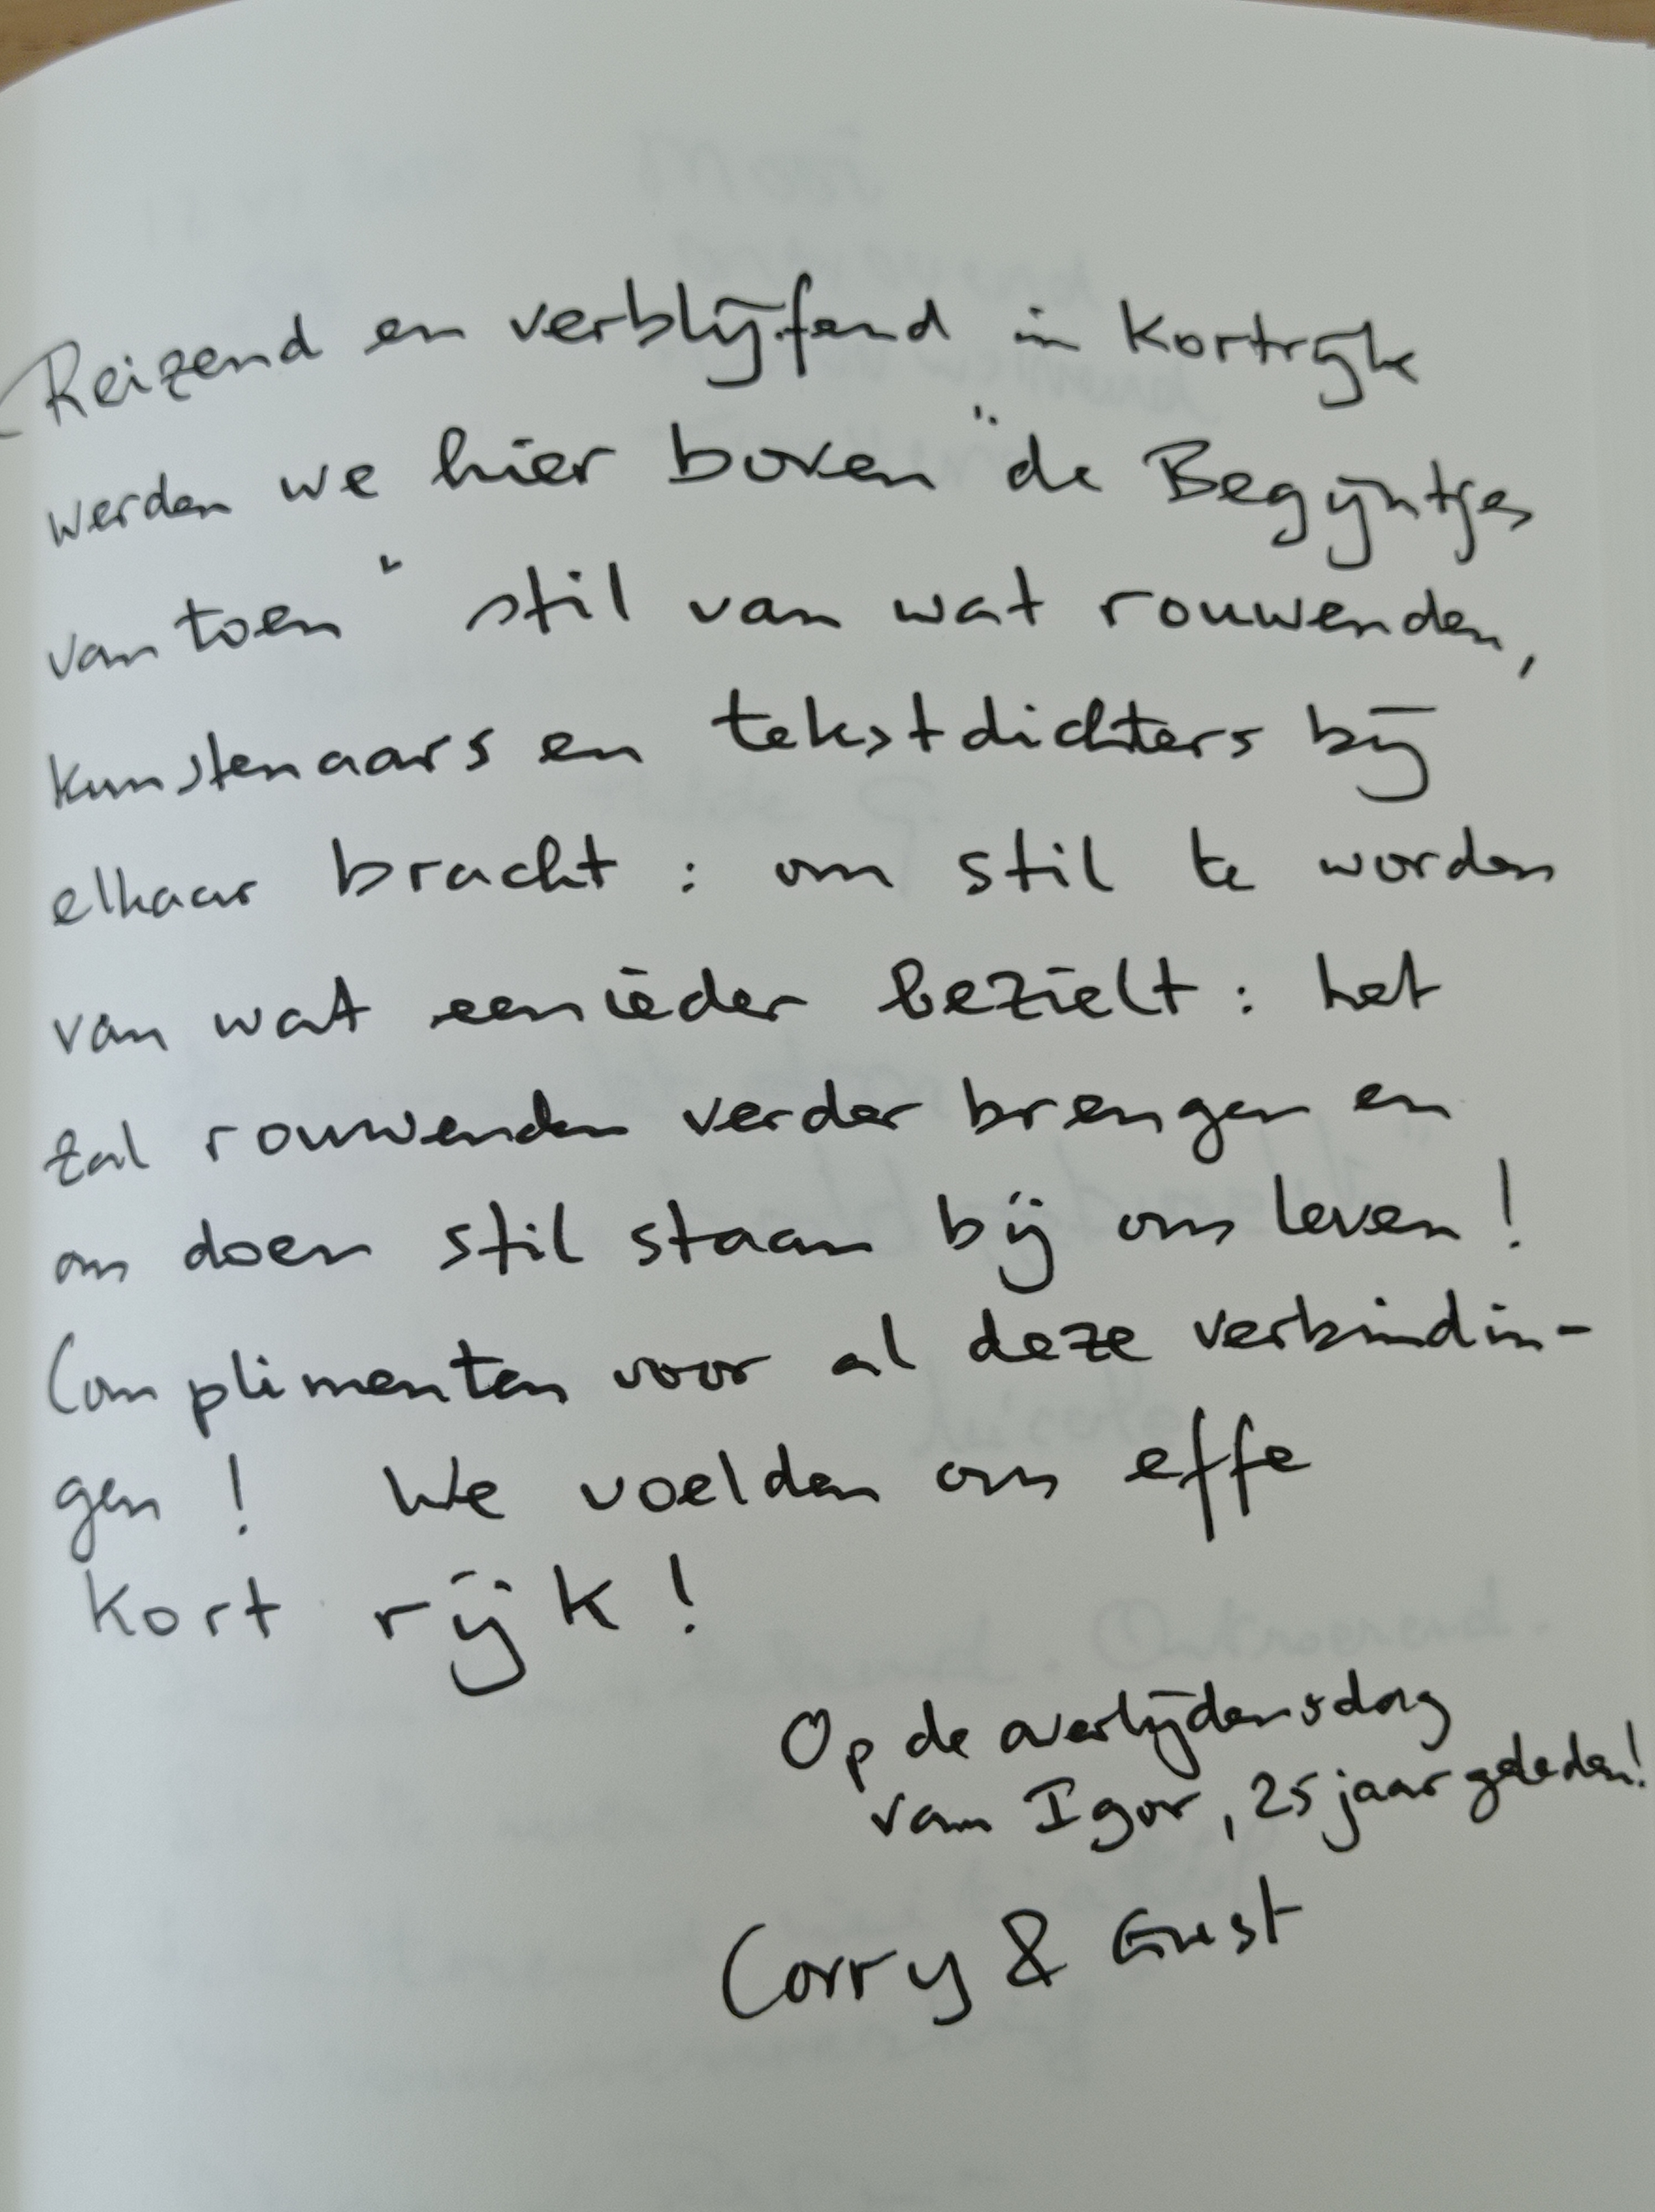 Reizend en verblijfend in Kortrijk
werden we hier boven "de Begijntjes
van toen" stil van wat rouwenden,
kunstenaars en tekstdichters bij
elkaar bracht : om stil te worden
van wat eenieder bezielt : het
zal rouwenden verder brengen en
ons doen stil staan bij ons leven !
Complimenten voor al deze verbindin-
gen ! We voelden ons effe
Kort rijk !
Op de overlijdensdag
van Igor, 25 jaar geleden!
Corry & Gust